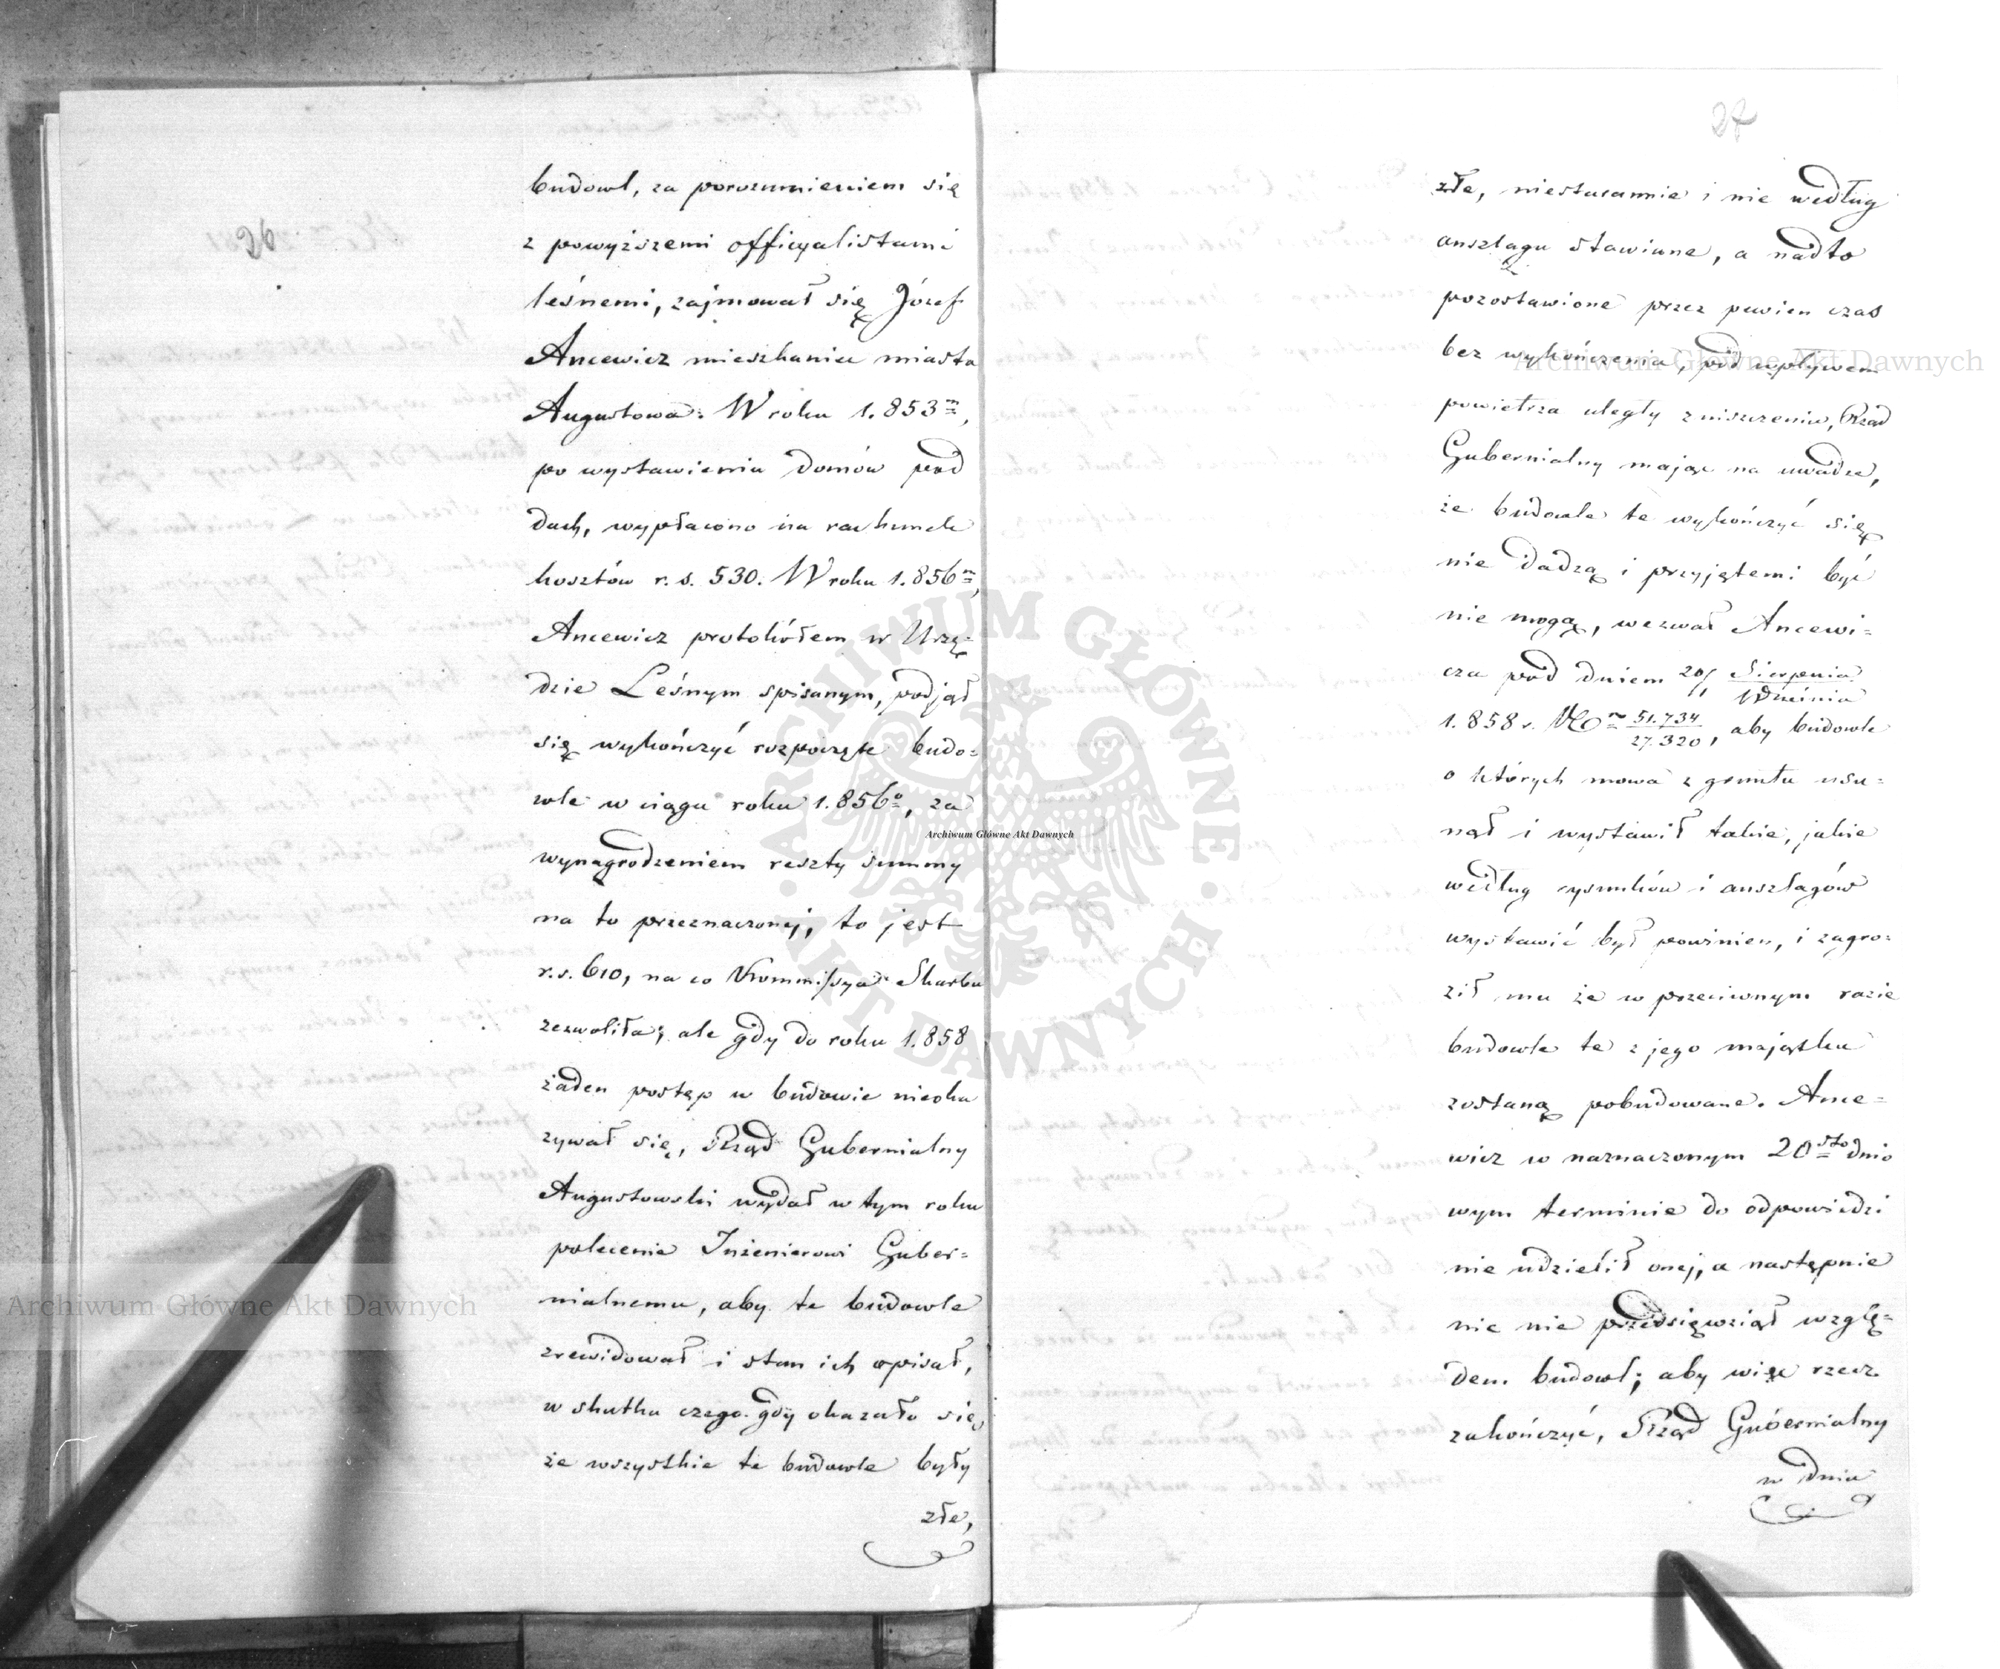 26
budowl, za porozumieniem się
z powyższemi officyalistami
leśnemi, zajmował się Józef
Ancewicz mieszkaniec miasta
Augustowa. W roku 1.853m,
po wystawieniu domów pod
dach, wypłacono na rachunek
kosztów r. s. 530. W roku 1.856m,
Ancewicz protokółem w Urzę-
dzie Leśnym spisanym, podjął
się wykończyć rozpoczęte budo-
wle w ciągu roku 1.856o, za
wynagrodzeniem reszty summy
na to przeznaczonej, to jest
r.s. 610, na co Kommissya Skarbu
zezwoliła; ale gdy do roku 1.858
żaden postęp w budowie nieoka
zywał się, Rząd Gubernialny
Augustowski wydał w tym roku
polecenie Inżenierowi Guber-
nialnemu, aby te budowle
zrewidował i stan ich opisał,
w skutku czego gdy okazało się,
że wszystkie te budowle były
złe,
27
złe, niestarannie i nie według
anszlagu stawiane, a nadto
pozostawione przez pewien czas
bez wykończenia, pod wpływem
powietrza uległy zniszczeniu, Rząd
Gubernialny mając na uwadze,
że budowle te wykończyć się
nie dadzą i przyjętemi być
nie mogą, wezwał Ancewi-
cza pod dniem 20/1 Sierpnia/Września
1.858 r. No 51.734/27.320, aby budowle
o których mowa z gruntu usu-
nął i wystawił takie, jakie
według rysunków i anszlagów
wystawić był powinien, i zagro-
ził mu że w przeciwnym razie
budowle te z jego majątku
zostaną pobudowane. Ance-
wicz w naznaczonym 20sto dnio
wym terminie do odpowiedzi
nie udzielił onej, a następnie
nic nie przedsięwziął wzglę-
dem budowl; aby więc rzecz
zakończyć, Rząd Gubernialny
w dniu
Archiwum Główne Akt Dawnych
Archiwum Główne Akt Dawnych
Archiwum Główne Akt Dawnych
ARCHIWUM GŁÓWNE · AKT DAWNYCH ·